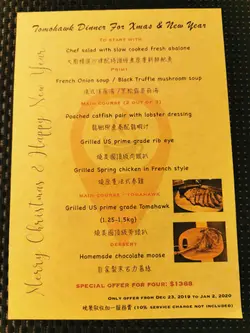 Tomohawk Dinner For Xmas & New Year
TO START WITH
Chef salad with slow cooked fresh abalone
PRIMI
French Onion soup / Black Truffle mushroom soup
MAIN COURSE (2 OUT OF 3)
Poached catfish pair with lobster dressing
Grilled US prime grade rib eye
燒美國頂級肉眼扒
Grilled Spring chicken in French style
MAIN COURSE - TOMOHAWK
Grilled US prime grade Tomahawk
(1.25-1.5kg)
燒美國頂級斧頭扒
DESSERT
Homemade chocolate moose
自家製朱古力慕絲
SPECIAL OFFER FOR FOUR: $1388
Only offer from Dec 23, 2019 to Jan 2, 2020
晚餐設收加一服務費 (10% service charge not included)
Merry Christmas & Happy New Year